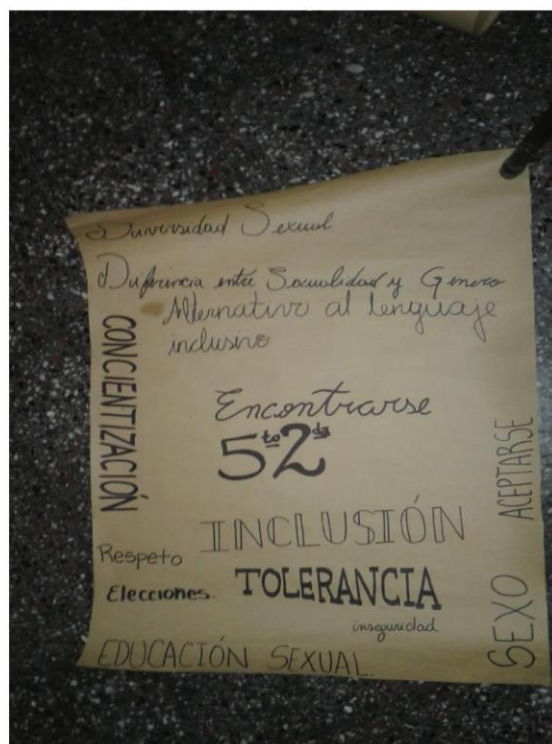 Diversidad Sexual
Diferencia entre Sexualidad y Genero
Alternativo al lenguaje
inclusivo
CONCIENTIZACIÓN
Encontrarse
5to 2da
ACEPTARSE
INCLUSIÓN
Respeto
TOLERANCIA
Elecciones.
inseguridad
SEXO
EDUCACIÓN SEXUAL.